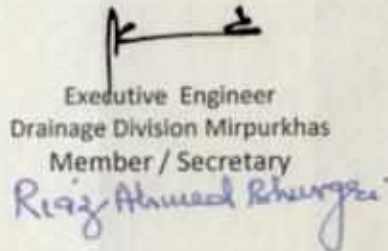 Executive Engineer
Drainage Division Mirpurkhas
Member / Secretary
Riaz Ahmed Bhurgri